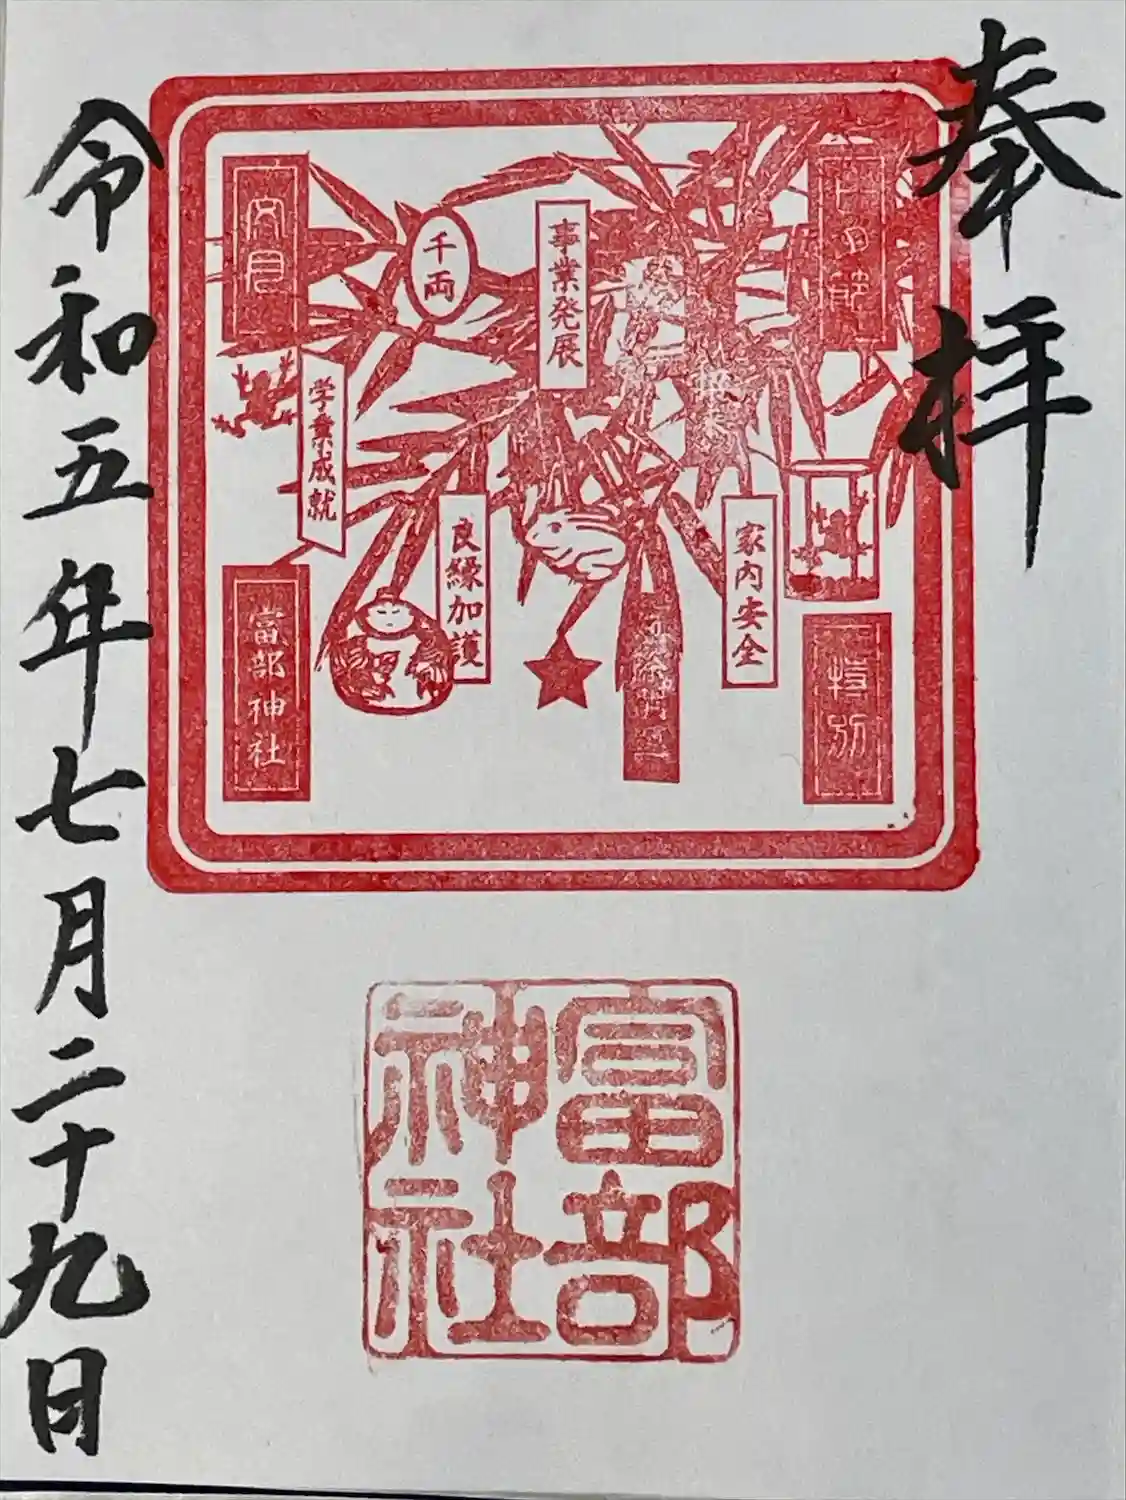 奉拝
特別
家内安全
事業発展
千両
良縁加護
学業成就
文月
富部神社
富部神社
令和五年七月二十九日